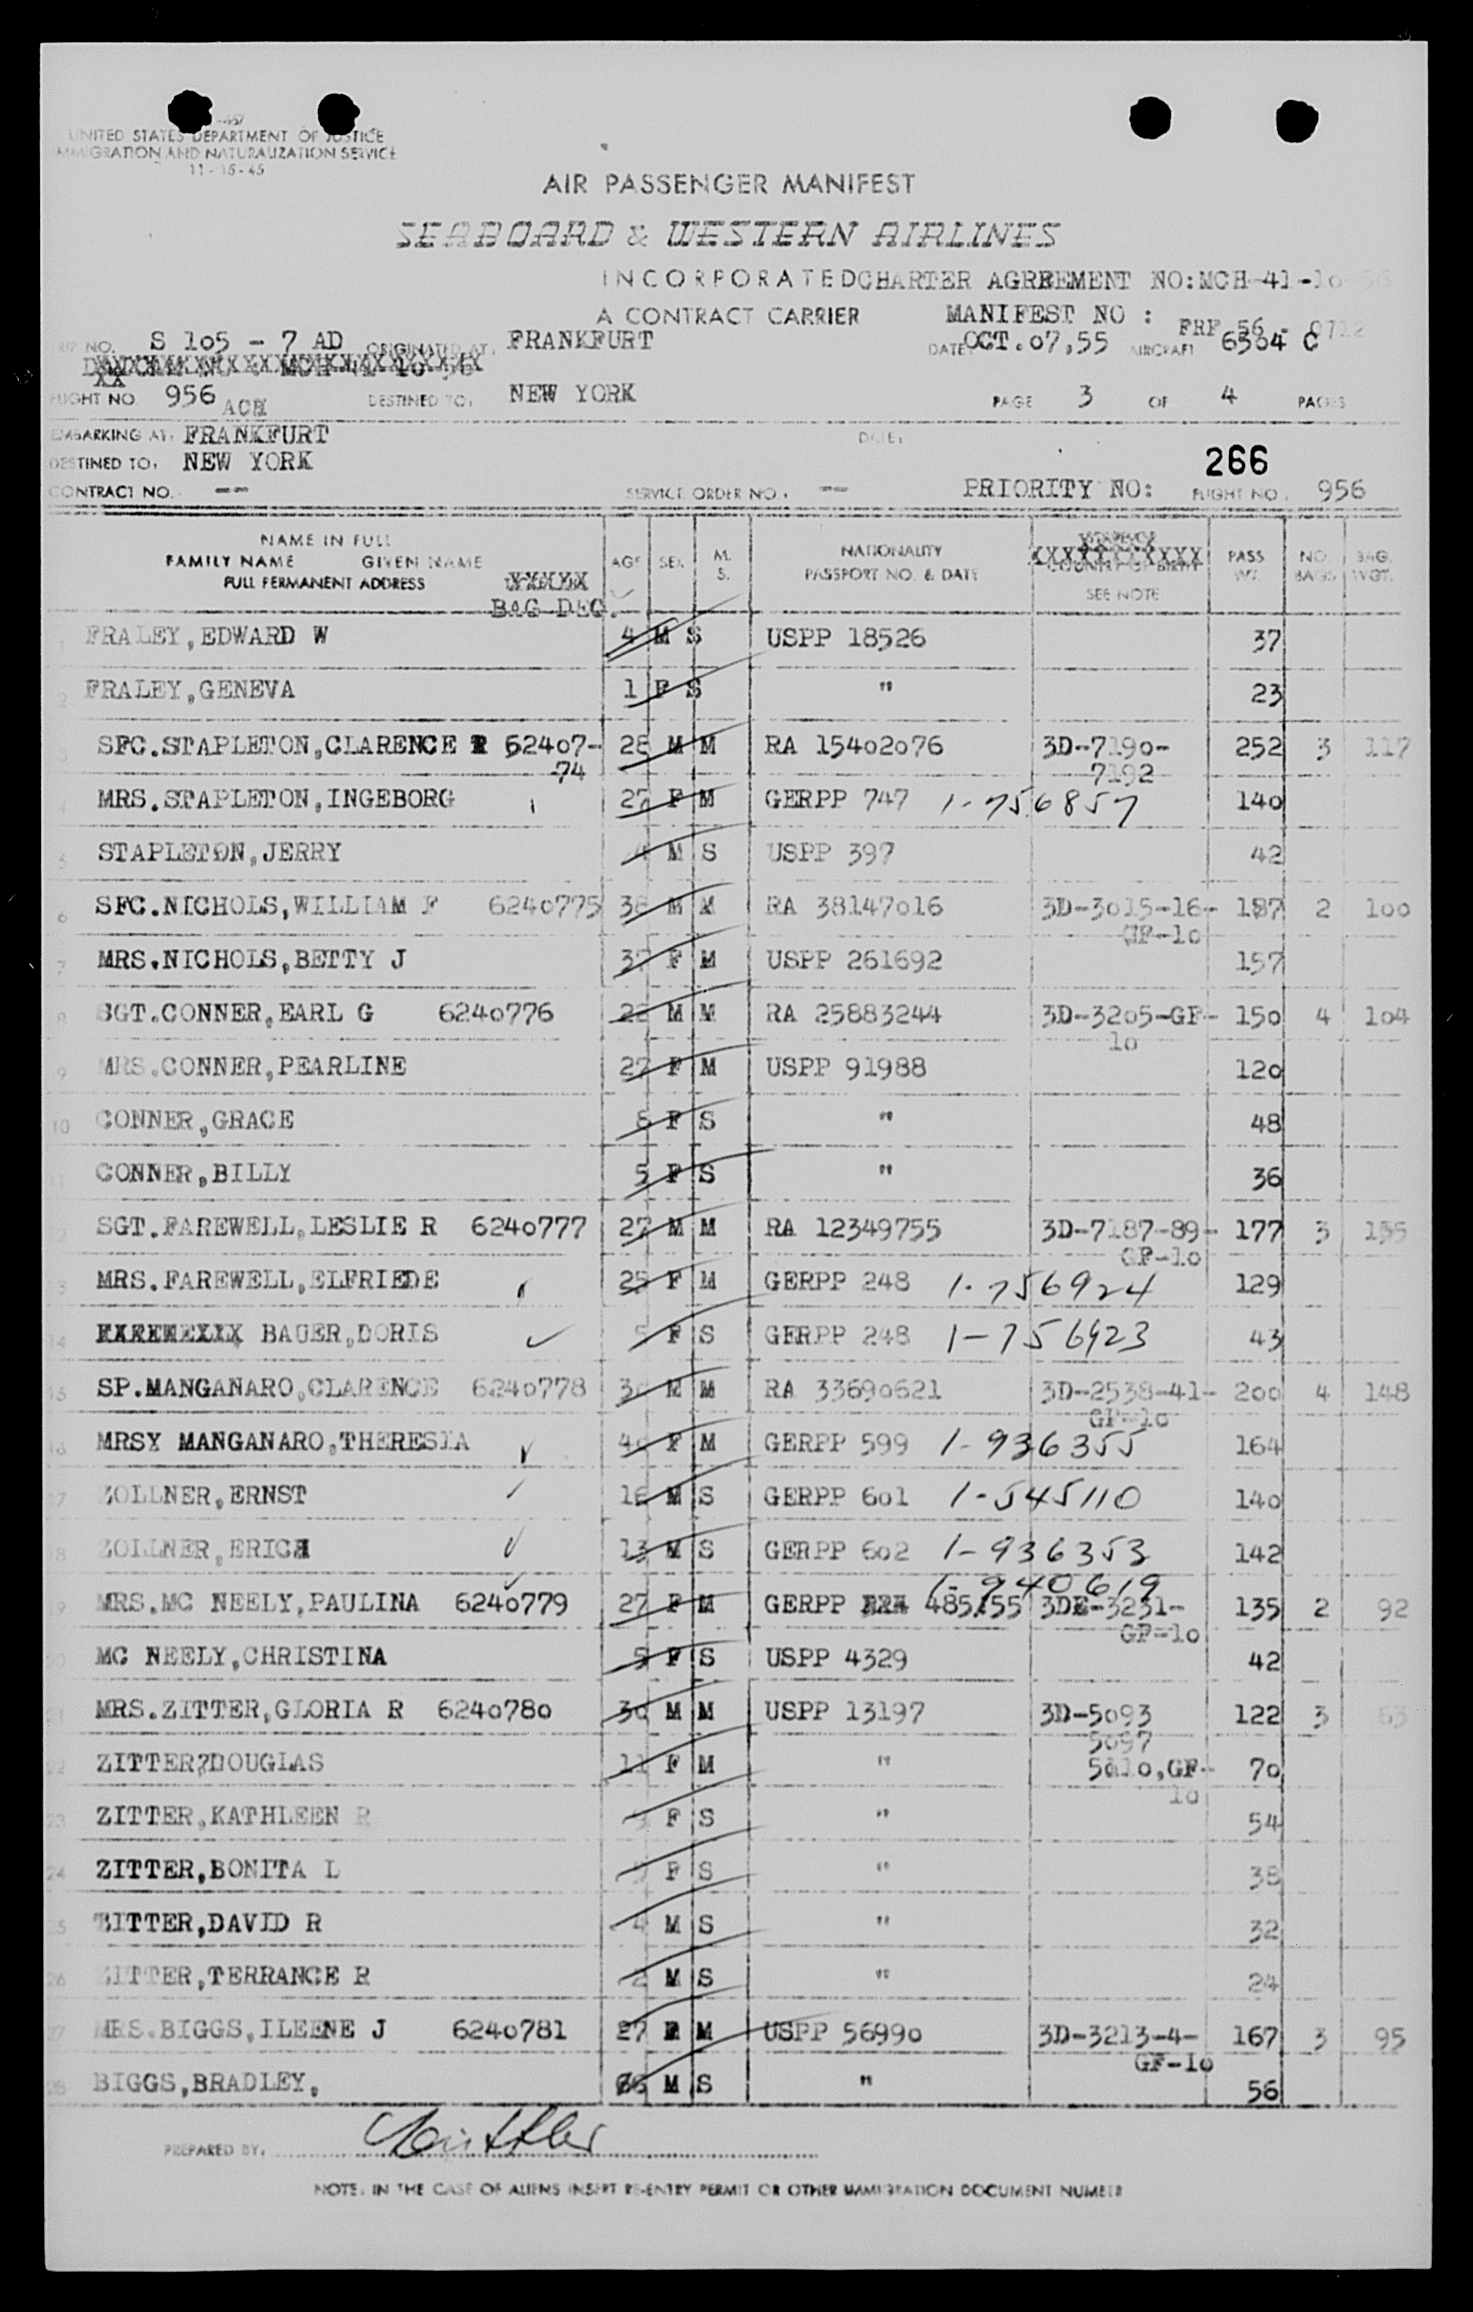 UNITED STATES DEPARTMENT OF JUSTICE
IMMIGRATION AND NATURALIZATION SERVICE
11-15-45
AIR PASSENGER MANIFEST
SEABOARD & WESTERN AIRLINES
INCORPORATED CHARTER AGREEMENT NO:MCH-41-10-56
A CONTRACT CARRIER MANIFEST NO : FRF 56 - 0712
TRIP NO. S 105 - 7 AD ORIGINATED AT, FRANKFURT DATE, OCT.07,55 AIRCRAFT 6564 C
FLIGHT NO 956 ACH DESTINED TO, NEW YORK PAGE 3 OF 4 PAGES
EMBARKING AT, FRANKFURT DATE,
DESTINED TO, NEW YORK 266
CONTRACT NO. -- SERVICE ORDER NO., -- PRIORITY NO: FLIGHT NO. 956
NAME IN FULL
FAMILY NAME GIVEN NAME AGE SEX M. S. NATIONALITY PASS NO. BAG.
FULL PERMANENT ADDRESS PASSPORT NO. & DATE COUNTRY OF BIRTH WT. BAGS WGT.
BAG DEC. SEE NOTE
1 FRALEY,EDWARD W 4 M S USPP 18526 37
2 FRALEY,GENEVA 1 F S " 23
3 SFC.STAPLETON,CLARENCE R 62407- 28 M M RA 15402076 3D-7190- 252 3 117
74 7192
4 MRS.STAPLETON,INGEBORG 27 F M GERPP 747 1-756857 140
5 STAPLETON,JERRY 4 M S USPP 397 42
6 SFC.NICHOLS,WILLIAM F 6240775 38 M M RA 38147016 3D-3015-16- 187 2 100
GF-10
7 MRS.NICHOLS,BETTY J 37 F M USPP 261692 157
8 SGT.CONNER,EARL G 6240776 28 M M RA 25883244 3D-3205-GF- 150 4 104
10
9 MRS.CONNER,PEARLINE 27 F M USPP 91988 120
10 CONNER,GRACE 8 F S " 48
11 CONNER,BILLY 5 F S " 36
12 SGT.FAREWELL,LESLIE R 6240777 27 M M RA 12349755 3D-7187-89- 177 3 135
GF-10
13 MRS.FAREWELL,ELFRIEDE 25 F M GERPP 248 1-756924 129
14 BAUER,DORIS 5 F S GERPP 248 1-756923 43
15 SP.MANGANARO,CLARENCE 6240778 M M RA 33690621 3D-2538-41- 200 4 148
GF-10
16 MRSY MANGANARO,THERESIA F M GERPP 599 1-936355 164
17 ZOLLNER,ERNST 16 M S GERPP 601 1-545110 140
18 ZOLLNER,ERICH 13 M S GERPP 602 1-936353 142
1-940619
19 MRS.MC NEELY,PAULINA 6240779 27 F M GERPP 485/55 3D-3231- 135 2 92
GF-10
20 MC NEELY,CHRISTINA 5 F S USPP 4329 42
21 MRS.ZITTER,GLORIA R 6240780 30 M M USPP 13197 3D-5093 122 3 63
5097
22 ZITTER,DOUGLAS 11 F M " 5010,GF- 70
10
23 ZITTER,KATHLEEN R F S " 54
24 ZITTER,BONITA L F S " 38
25 ZITTER,DAVID R 4 M S " 32
26 ZITTER,TERRANCE R 2 M S " 24
27 MRS.BIGGS,ILEENE J 6240781 27 F M USPP 56990 3D-3213-4- 167 3 95
GF-10
28 BIGGS,BRADLEY, M S " 56
PREPARED BY,
NOTE, IN THE CASE OF ALIENS INSERT RE-ENTRY PERMIT OR OTHER IMMIGRATION DOCUMENT NUMBER